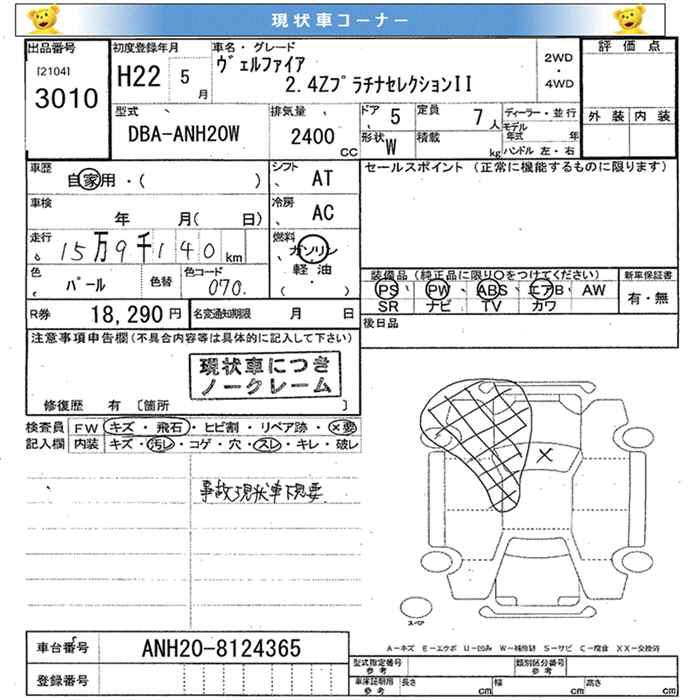 現状車コーナー
出品番号
[2104]
3010
初度登録年月
H22 5 月
車名・グレード
ヴェルファイア
2.4ZプラチナセレクションII
2WD
・
4WD
評価点
外装 内装
型式
DBA-ANH20W
排気量
2400 CC
ドア 5
形状 W
定員 7 人
積載 kg
ディーラー・並行
モデル年式 年
ハンドル 左・右
車歴
自家用・( )
シフト AT
セールスポイント (正常に機能するものに限ります)
車検
年 月( 日)
冷房 AC
走行 15万9千140 km
燃料 ガソリン
軽油
( ・ )
色 パール
色替
色コード 070.
装備品 (純正品に限り〇をつけてください)
新車保証書
PS PW ABS エアB AW
SR ナビ TV カワ
有・無
R券 18,290 円
名変通知期限 月 日
後日品
注意事項申告欄(不具合内容等は具体的に記入して下さい)
現状車につき
ノークレーム
修復歴 有 [箇所 ]
検査員 FW キズ・飛石・ヒビ割・リペア跡・×要
記入欄 内装 キズ・汚レ・コゲ・穴・スレ・キレ・破レ
事故現状車下見要
×
スペア
車台番号 ANH20-8124365
登録番号
A-キズ E-エクボ U-凹み W-補修跡 S-サビ C-腐食 XX-交換済
型式指定番号 参考
類別区分番号 参考
車庫証明用 参考 長さ cm 幅 cm 高さ cm